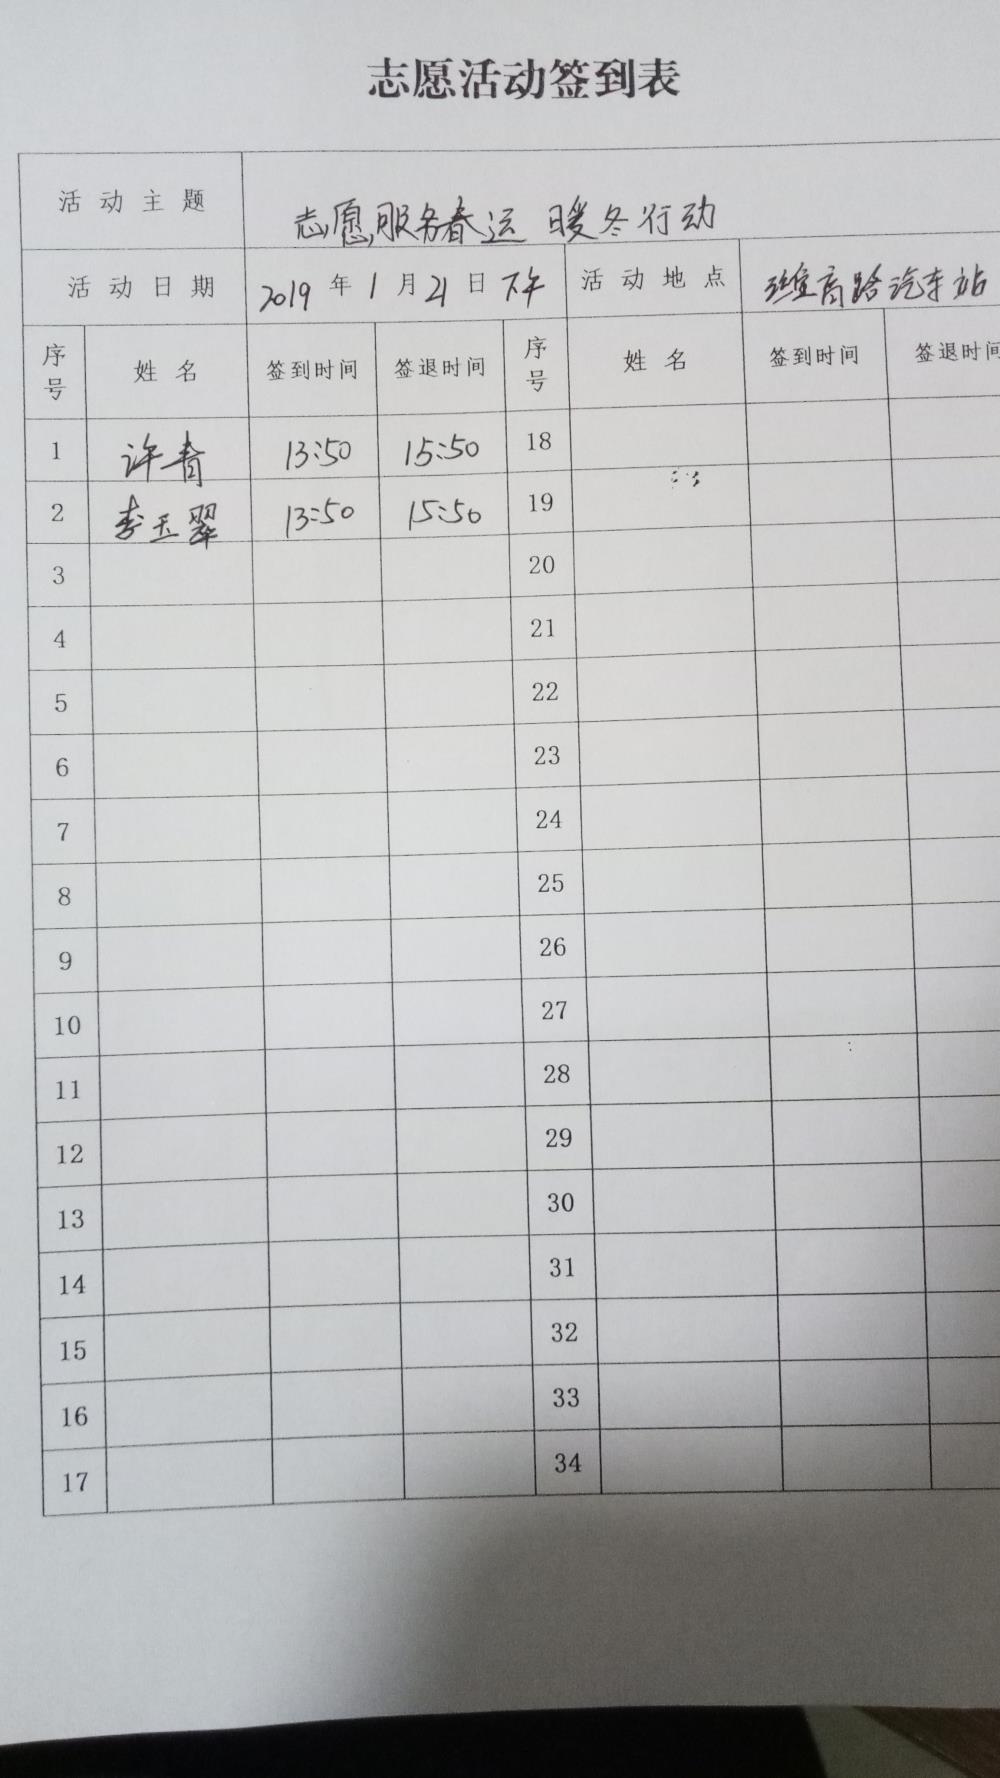 志愿活动签到表
活动主题 志愿服务春运 暖冬行动
活动日期 2019年1月21日下午 活动地点 商路汽车站
序号 姓名 签到时间 签退时间 序号 姓名 签到时间 签退时间
1 许青 13:50 15:50 18
2 李玉翠 13:50 15:50 19
3 20
4 21
5 22
6 23
7 24
8 25
9 26
10 27
11 28
12 29
13 30
14 31
15 32
16 33
17 34